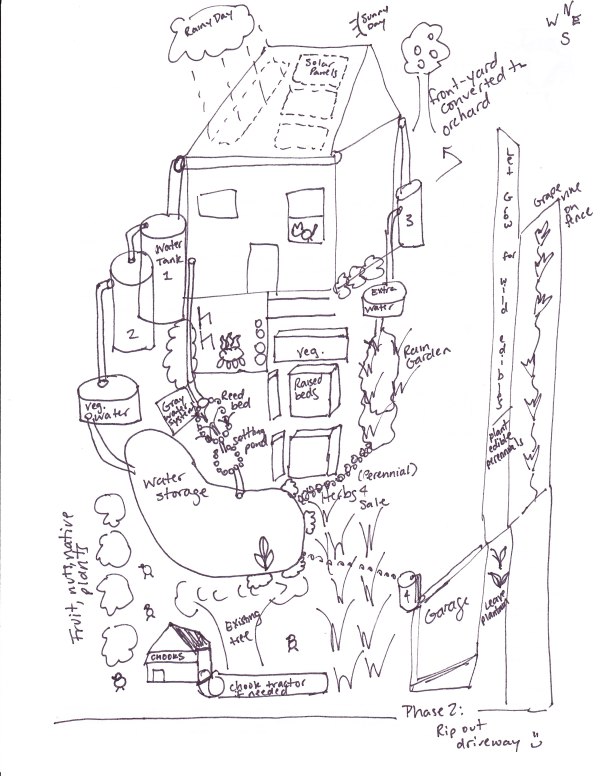 Rainy Day
Sunny
Day
N
W E
S
Solar
Panels
front-yard
converted to
orchard
Let Grow for wild edibles
Grape
vine
on
fence
Water
Tank
1
2
3
Extra
Water
veg.
Rain
Garden
Raised
beds
Veg.
water
Gray
water
System
Reed
bed
settling
pond
plant
edible
perennials
Water
storage
(Perennial)
Herbs 4
Sale
Fruit, nuts, native
plants
4
Garage
Leave
plantain
Existing
tree
CHOOKS
Chook tractor
if needed
Phase 2:
Rip out
driveway